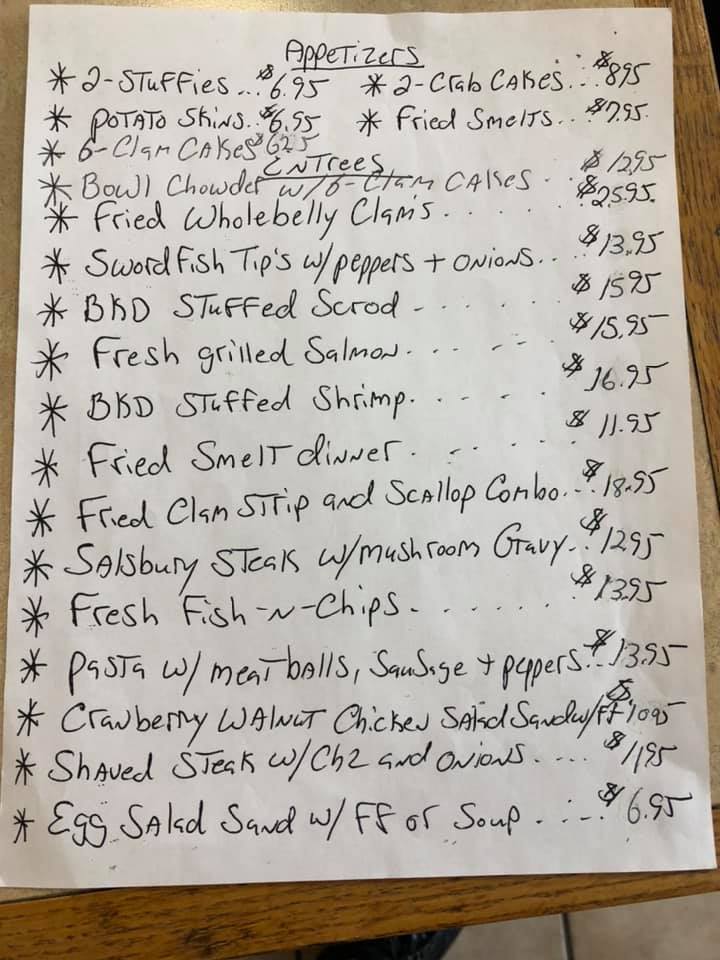 Appetizers
* 2-Stuffies... $6.95 * 2-Crab Cakes... $8.95
* Potato Skins.. $6.95 * Fried Smelts.. $7.95.
* 6-Clam Cakes $6.25
Entrees
* Bowl Chowder w/6-Clam Cakes . $12.95
* Fried Wholebelly Clams. . . . . $25.95.
* Swordfish Tip's w/peppers + onions.. $13.95
* BKD Stuffed Scrod - . . . . $15.95
* Fresh grilled Salmon. . . - -- . $15.95
* BKD Stuffed Shrimp. - . . . $16.95
* Fried Smelt dinner. . - . . . . $11.95
* Fried Clam Strip and Scallop Combo... $18.95
* Salsbury Steak w/mushroom Gravy.. $12.95
* Fresh Fish-n-Chips. . . . . . . $13.95
* Pasta w/ meatballs, Sausage + peppers... $13.95
* Cranberry Walnut Chicken Salad Sand w/FF $10.95
* Shaved Steak w/Chz and onions. . . . $11.95
* Egg Salad Sand w/ FF or Soup . . . . $6.95